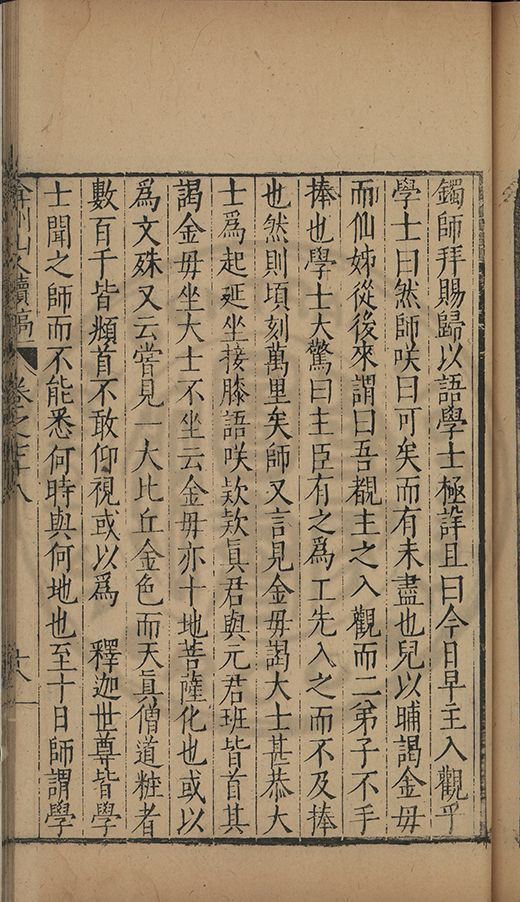 鐲師拜賜歸以語學士極詳且曰今日早主入觀乎
學士曰然師咲曰可矣而有未盡也兒以晡謁金母
而仙姊從後來謂曰吾覩主之入觀而二弟子不手
捧也學士大驚曰主臣有之為工先入之而不及捧
也然則頃刻萬里矣師又言見金母謁大士甚恭大
士為起延坐接膝語咲欵欵真君與元君班皆首其
謁金母坐大士不坐云金母亦十地菩薩化也或以
為文殊又云嘗見一大比丘金色而天真僧道粧者
數百千皆頫首不敢仰視或以為　釋迦世尊皆學
士聞之師而不能悉何時與何地也至十日師謂學
弇州山人續稿 卷之七十八 十八